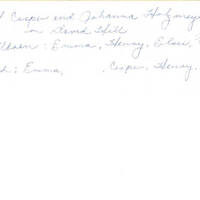 Casper and Johanna Holzmeye
in David Hill
: Emma, Henry, Elsie,
: Emma, . Casper, Henry,